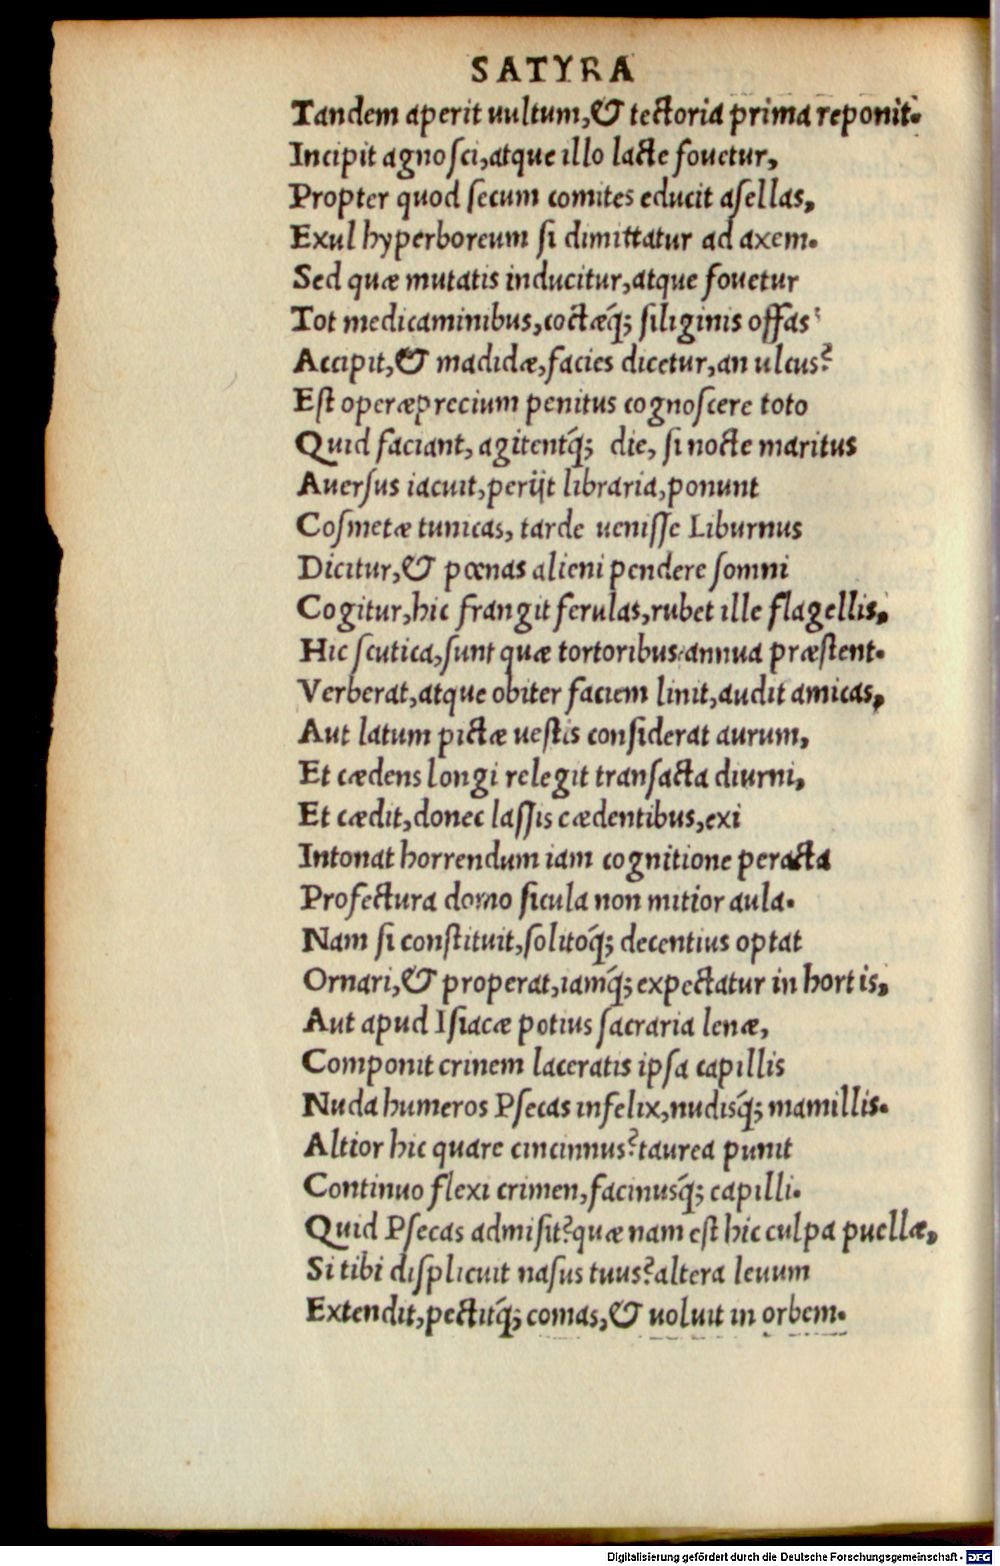 SATYRA
Tandem aperit uultum,& tectoria prima reponit.
Incipit agnosci,atque illo lacte fouetur,
Propter quod secum comites educit asellas,
Exul hyperboreum si dimittatur ad axem.
Sed quæ mutatis inducitur,atque fouetur
Tot medicaminibus,coctæq́; siliginis offas
Accipit,& madidæ,facies dicetur,an ulcus?
Est operæprecium penitus cognoscere toto
Quid faciant, agitentq́; die, si nocte maritus
Auersus iacuit,perijt libraria,ponunt
Cosmetæ tunicas, tarde uenisse Liburnus
Dicitur,& pœnas alieni pendere somni
Cogitur,hic frangit ferulas,rubet ille flagellis,
Hic scutica,sunt quæ tortoribus annua præstent.
Verberat,atque obiter faciem linit,audit amicas,
Aut latum pictæ uestis considerat aurum,
Et cædens longi relegit transacta diurni,
Et cædit,donec lassis cædentibus,exi
Intonat horrendum iam cognitione peracta
Profectura domo sicula non mitior aula.
Nam si constituit,solitoq́; decentius optat
Ornari,& properat,iamq́; expectatur in hortis,
Aut apud Isiacæ potius sacraria lenæ,
Componit crinem laceratis ipsa capillis
Nuda humeros Psecas infelix,nudisq́; mamillis.
Altior hic quare cincinnus?taurea punit
Continuo flexi crimen,facinusq́; capilli.
Quid Psecas admisit?quæ nam est hic culpa puellæ,
Si tibi displicuit nasus tuus?altera leuum
Extendit,pectitq́; comas,& uoluit in orbem.
Digitalisierung gefördert durch die Deutsche Forschungsgemeinschaft - DFG